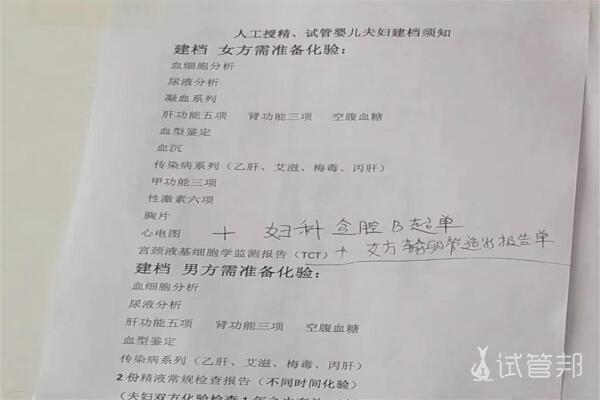 人工授精、试管婴儿夫妇建档须知
建档 女方需准备化验：
血细胞分析
尿液分析
凝血系列
肝功能五项 肾功能三项 空腹血糖
血型鉴定
血沉
传染病系列（乙肝、艾滋、梅毒、丙肝）
甲功能三项
性激素六项
胸片
心电图 + 妇科 腔B超单
宫颈液基细胞学监测报告（TCT）+ 女方输卵管造影报告单
建档 男方需准备化验：
血细胞分析
尿液分析
肝功能五项 肾功能三项 空腹血糖
血型鉴定
传染病系列（乙肝、艾滋、梅毒、丙肝）
2份精液常规检查报告（不同时间化验）
（夫妇双方化验检查1年之内有效
试管邦